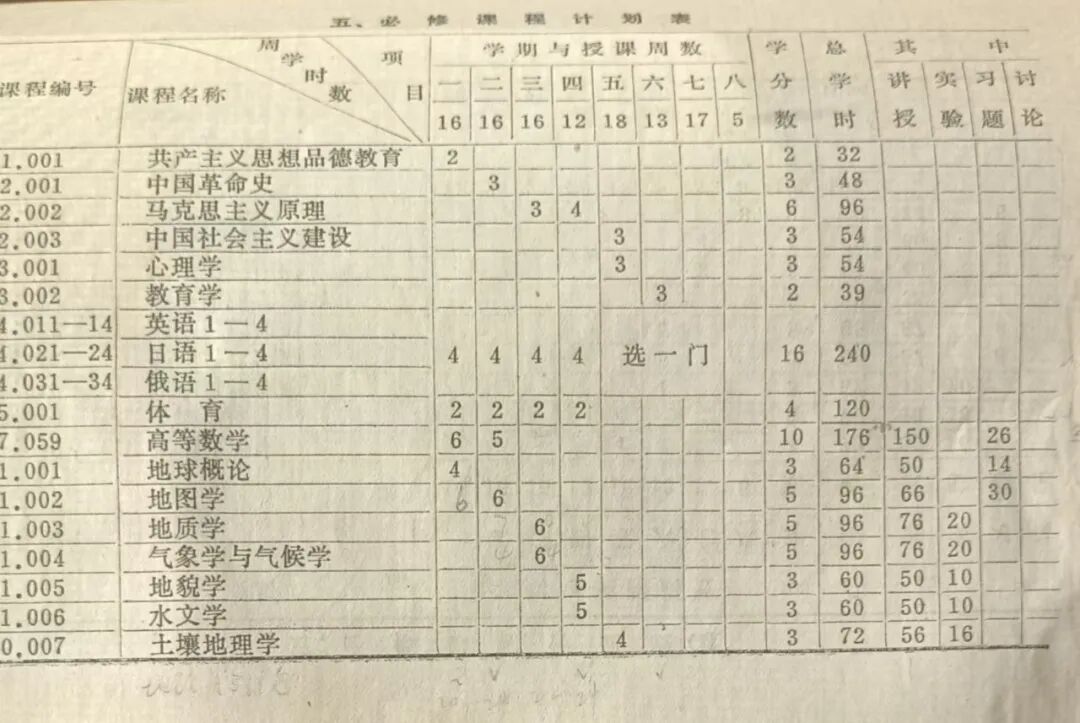 五、必修课程计划表
课程编号 课程名称 周学时数 项目 学期与授课周数 学分数 总学时 其中
一 二 三 四 五 六 七 八 讲授 实验 习题 讨论
16 16 16 12 18 13 17 5
1.001 共产主义思想品德教育 2 2 32
2.001 中国革命史 3 3 48
2.002 马克思主义原理 3 4 6 96
2.003 中国社会主义建设 3 3 54
3.001 心理学 3 3 54
3.002 教育学 3 2 39
4.011—14 英语1—4
4.021—24 日语1—4 4 4 4 4 选一门 16 240
4.031—34 俄语1—4
5.001 体育 2 2 2 2 4 120
7.059 高等数学 6 5 10 176 150 26
1.001 地球概论 4 3 64 50 14
1.002 地图学 6 6 5 96 66 30
1.003 地质学 6 5 96 76 20
1.004 气象学与气候学 6 5 96 76 20
1.005 地貌学 5 3 60 50 10
1.006 水文学 5 3 60 50 10
0.007 土壤地理学 4 3 72 56 16